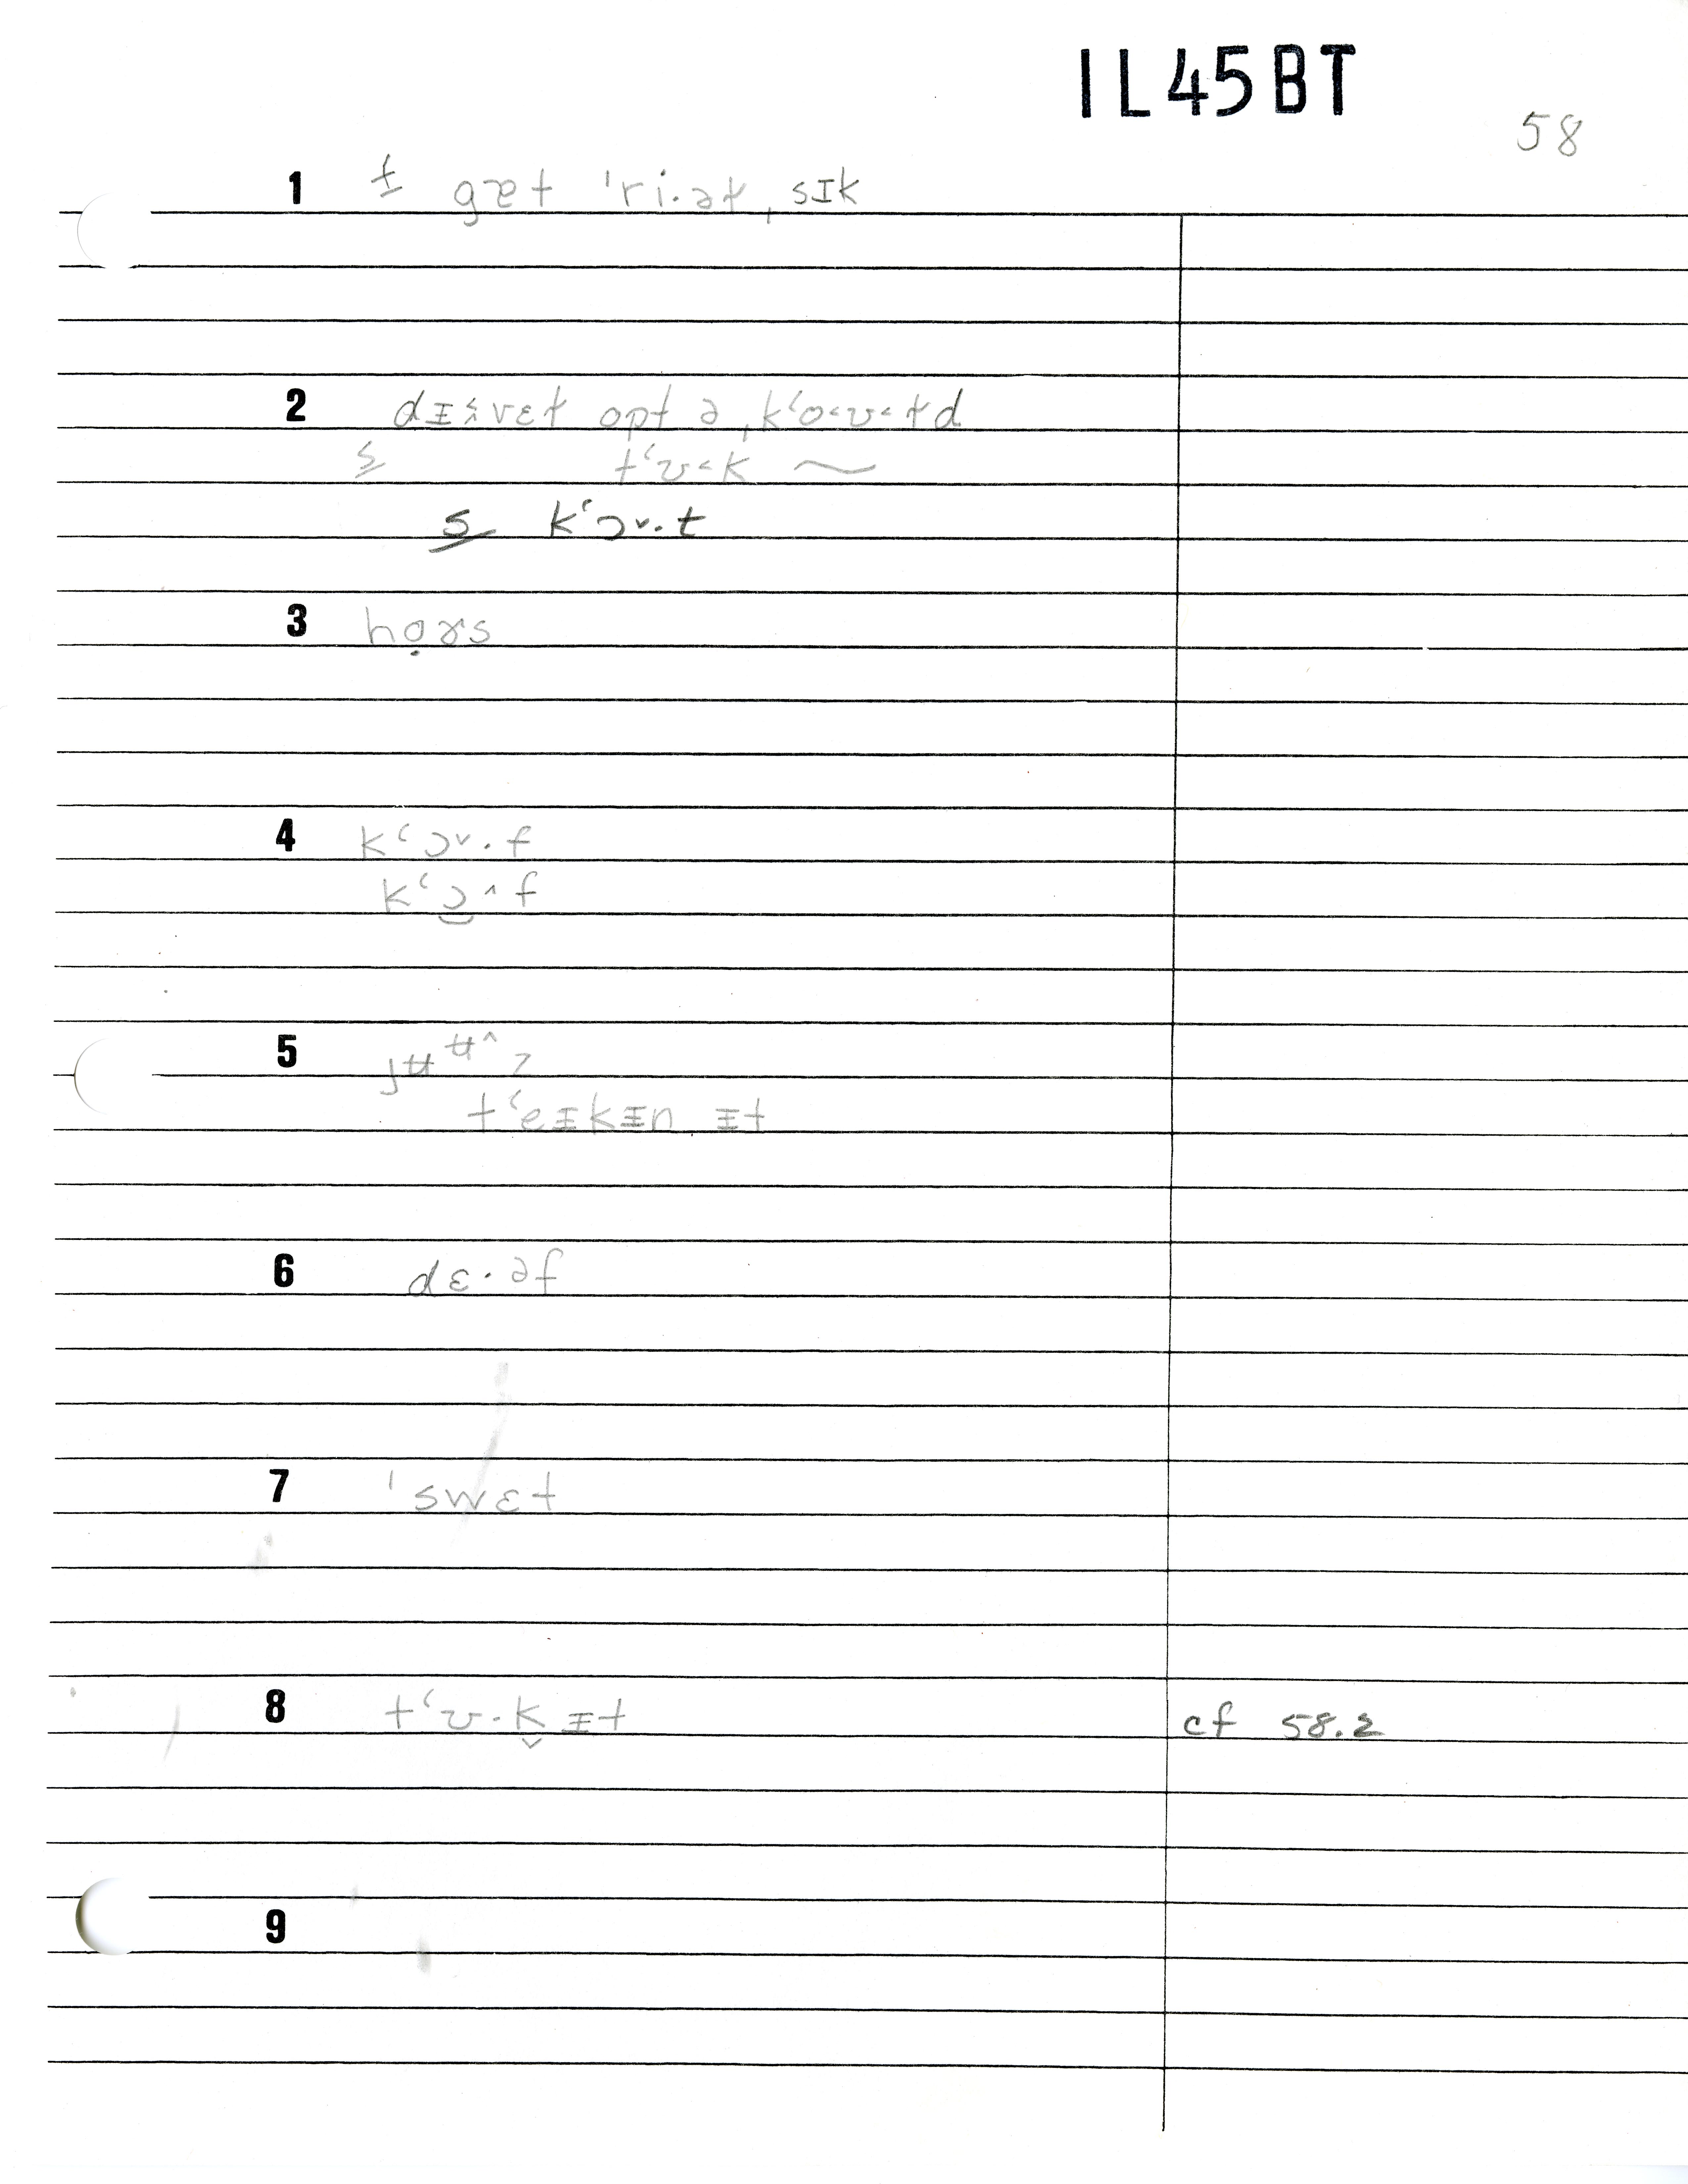 IL45BT
58
1 ɨ gɐt ˈri.əɫ, sɪk
2 dɪʂvɛɫ opt ə ˌkʻo˂ʊ˂ɫd
s tʻʊ˂k ~
s kʻɔ˅.t
3 họɤs
4 kʻɔ˅.f
kʻɔ̮˄f
5 jʉ ʉ˄ ?
tʻeᵻkᵻn ᵻt
6 dɛ.əf
7 ˈswɛt
8 tʻʊ.k̬ ᵻt cf 58.2
9